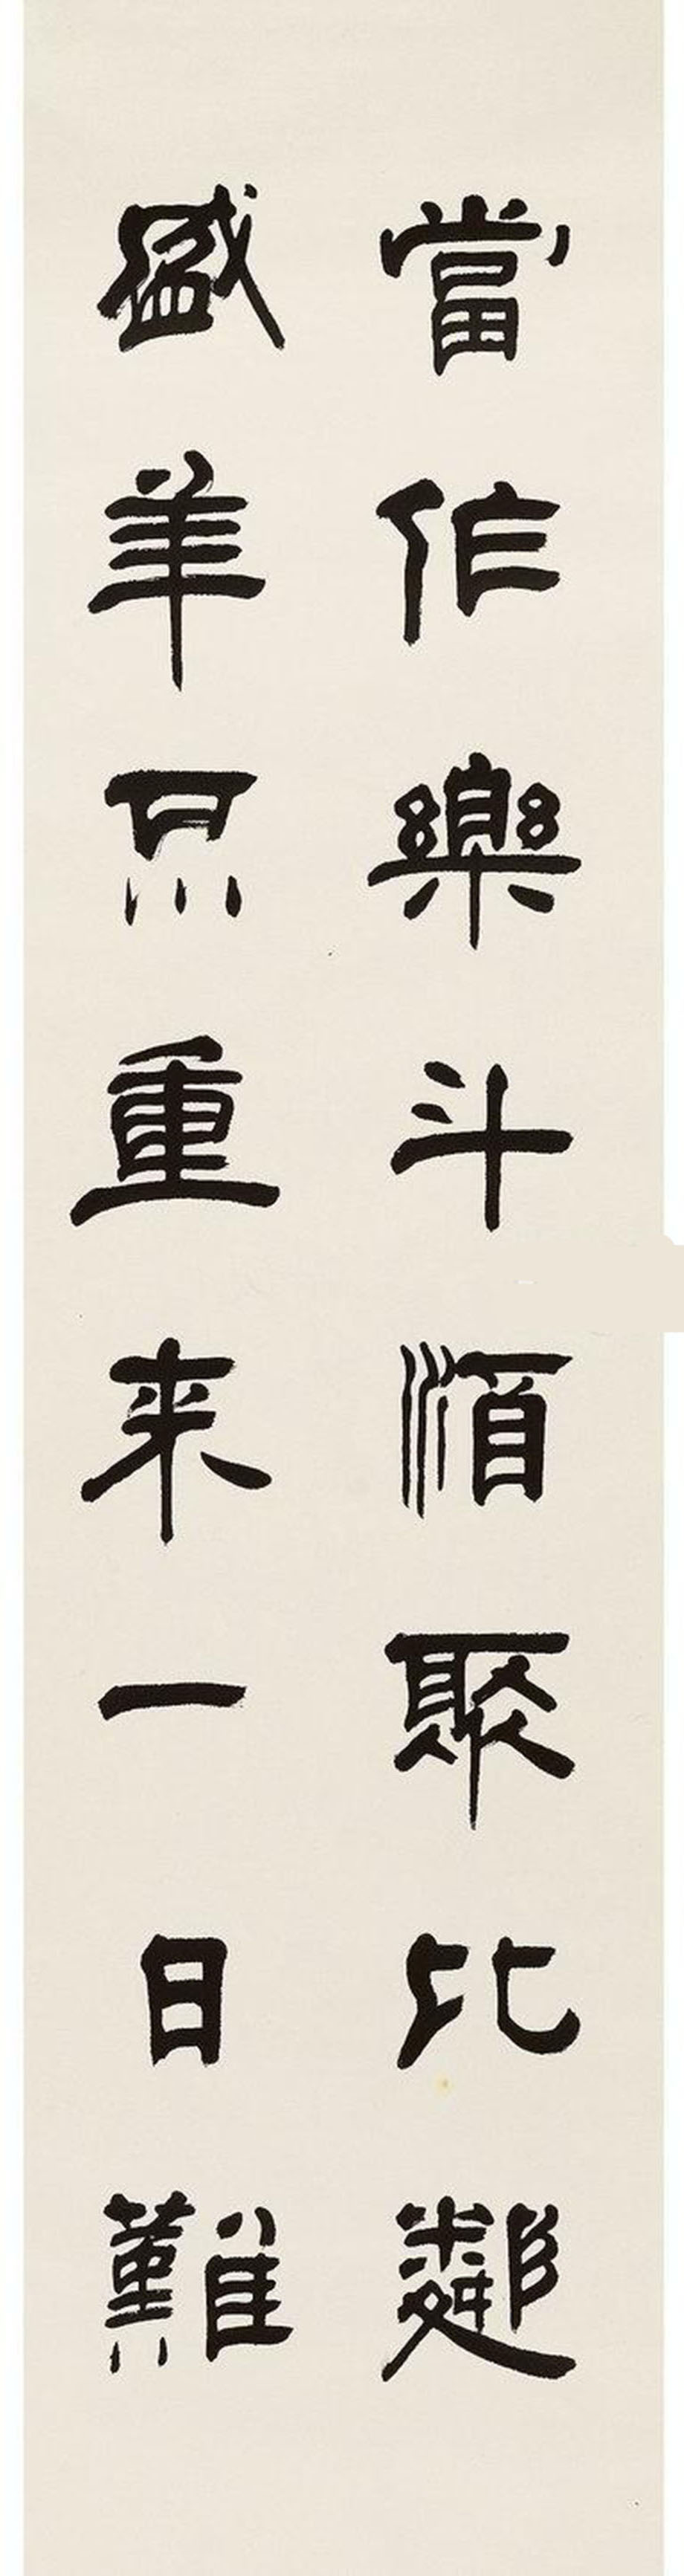 當作樂斗酒聚比鄰
盛年不重来一日難